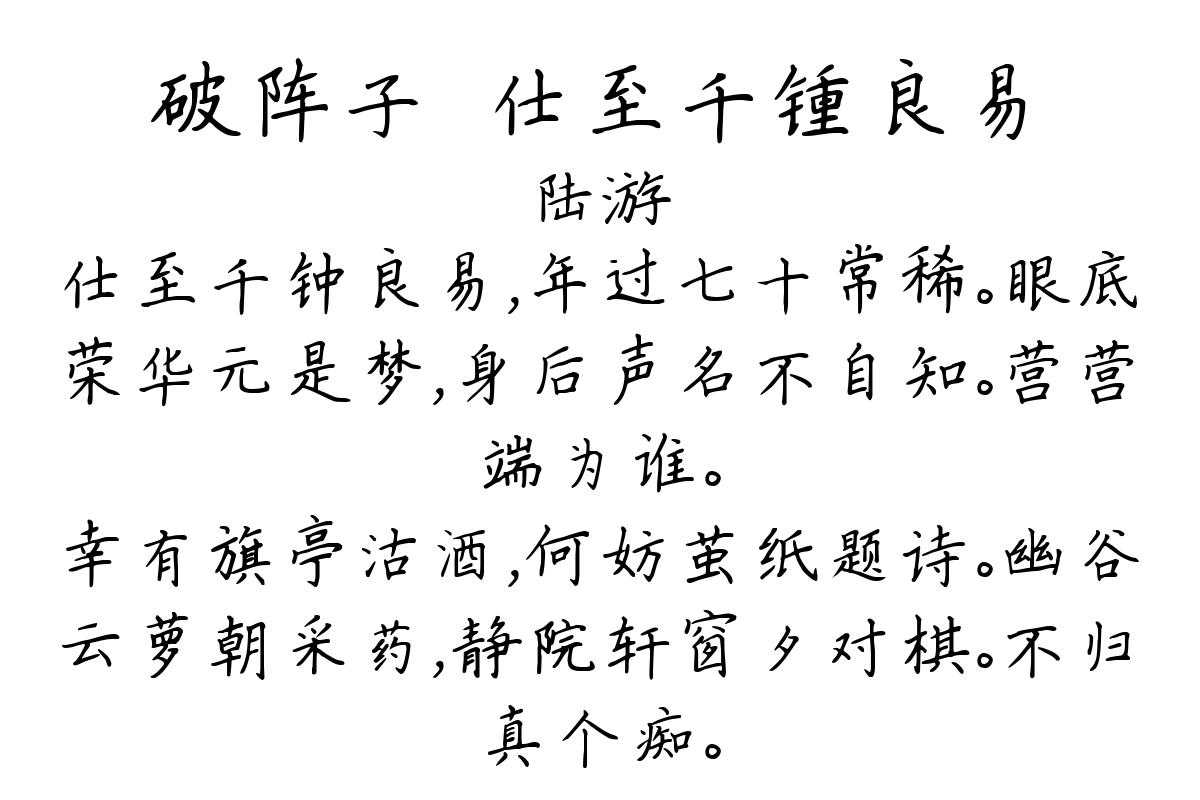 破阵子 仕至千锺良易
陆游
仕至千钟良易,年过七十常稀。眼底
荣华元是梦,身后声名不自知。营营
端为谁。
幸有旗亭沽酒,何妨茧纸题诗。幽谷
云萝朝采药,静院轩窗夕对棋。不归
真个痴。